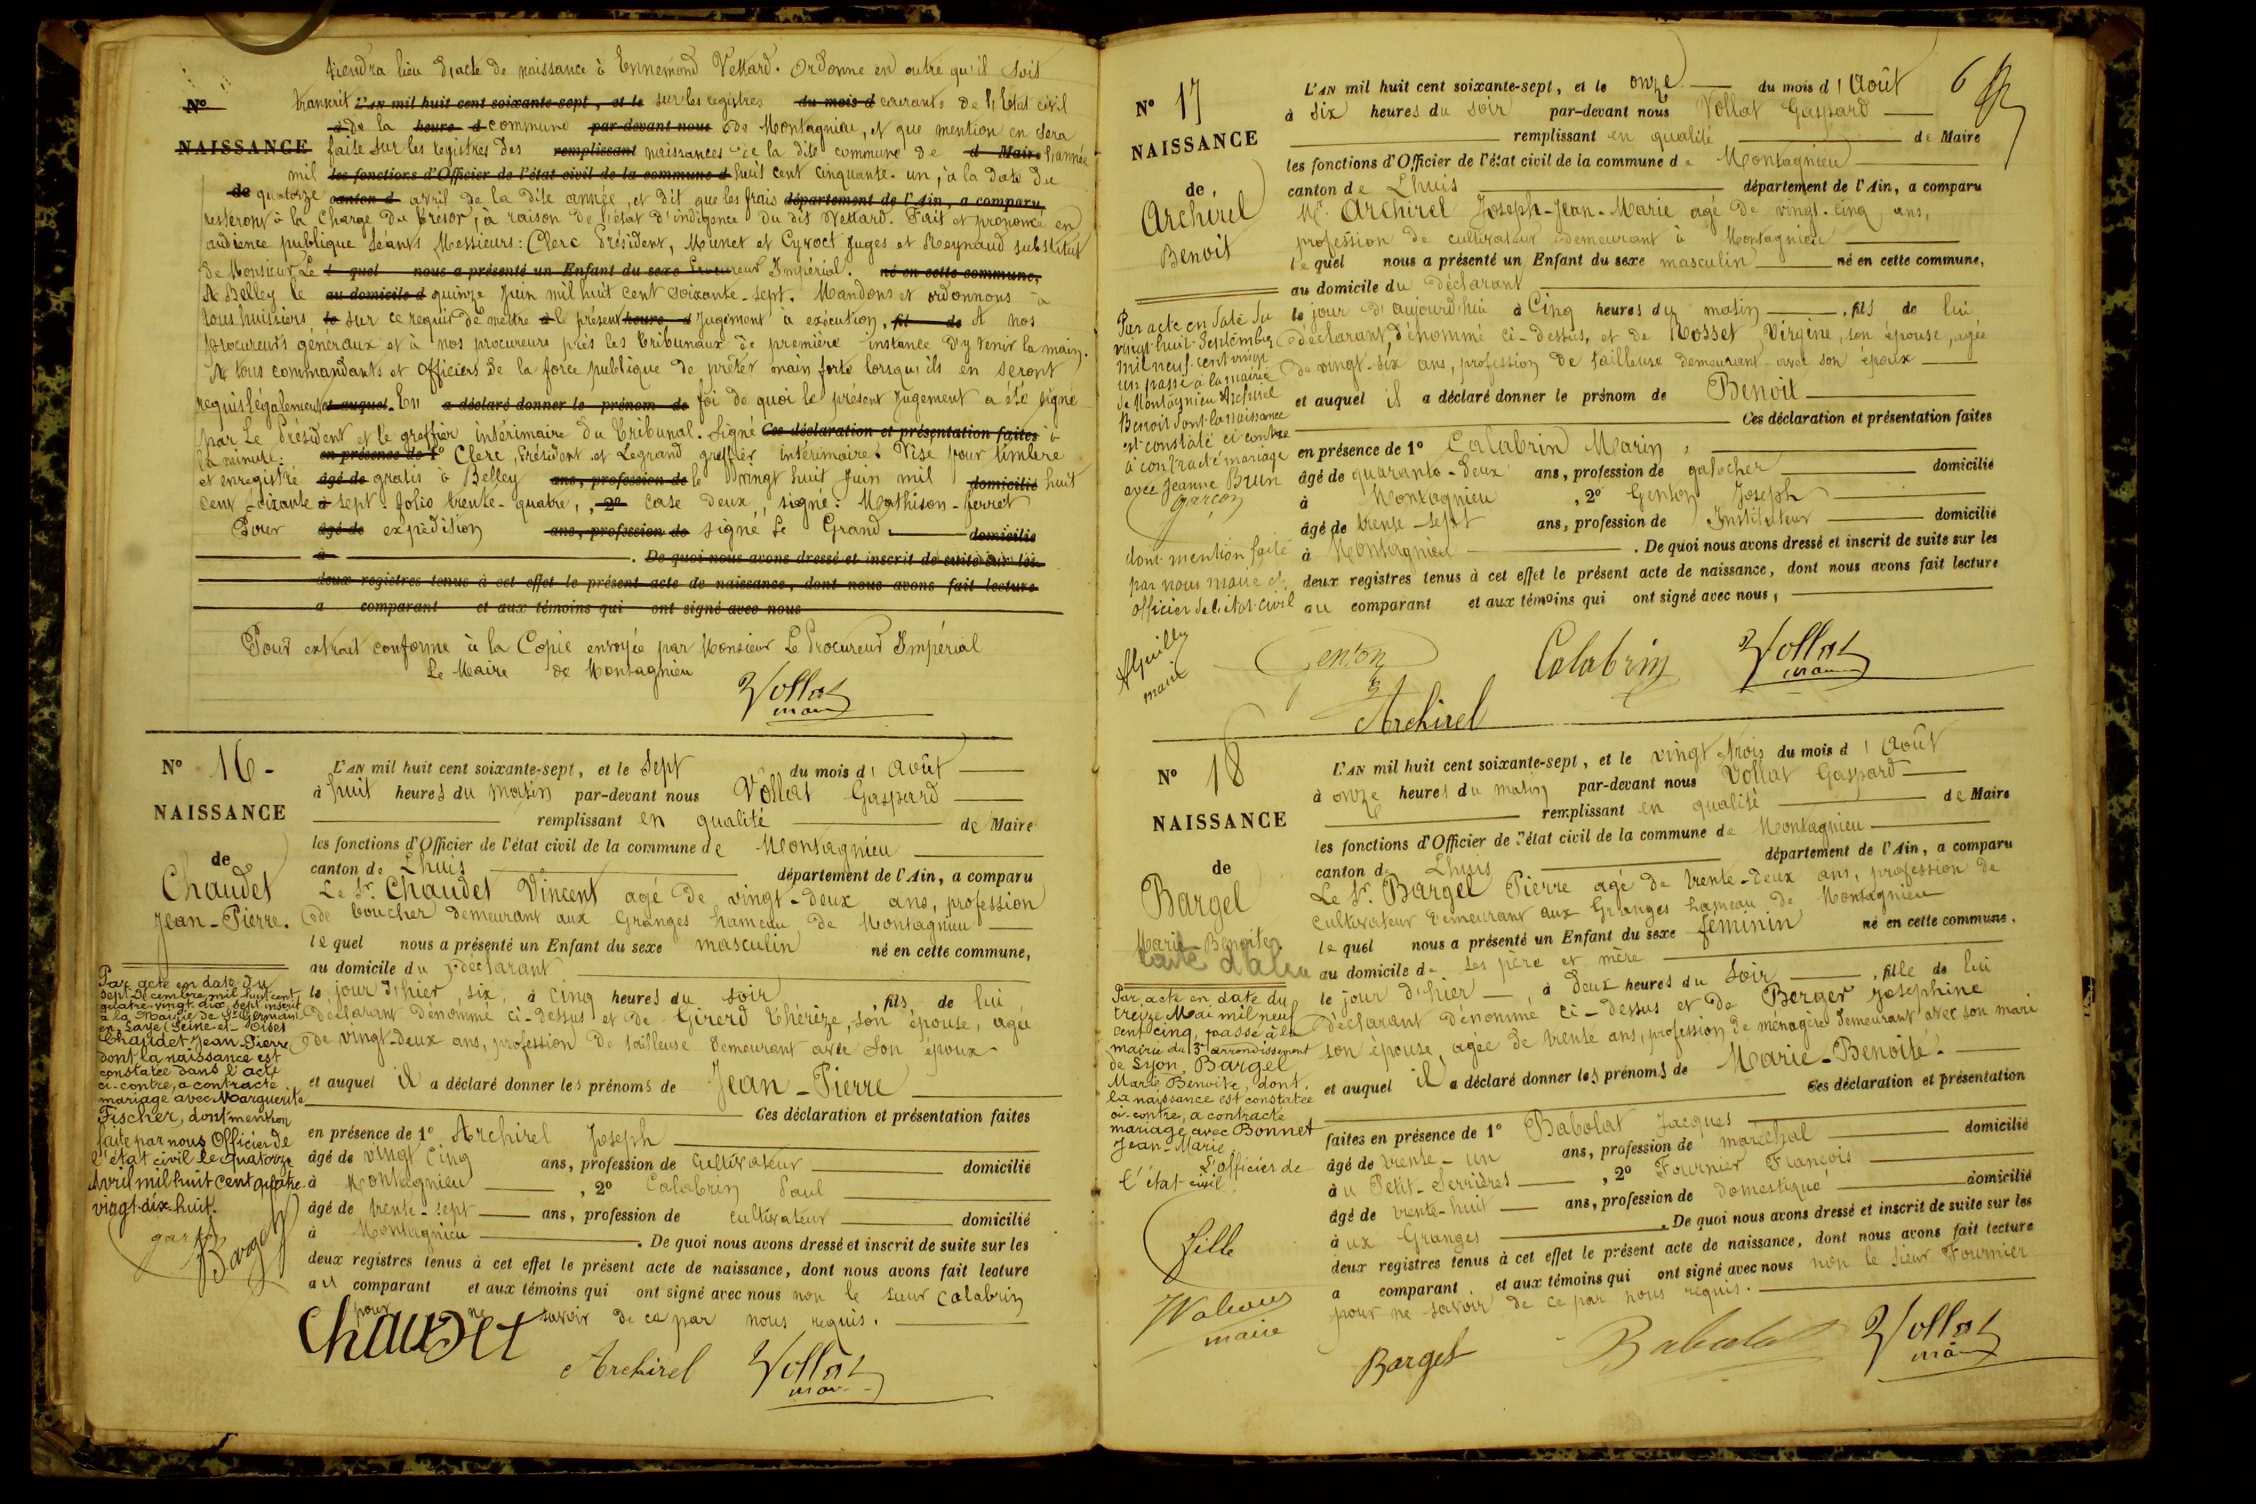 tiendra lieu d'acte de naissance à Ennemond Vettard. Ordonne en outre qu'il soit
N° transcrit L'AN mil huit cent soixante-sept, et le sur les registres du mois d courants de l'Etat civil
à de la heure d commune par-devant nous de Montagnieu, et que mention en sera
NAISSANCE faite sur les registres des remplissant naissances de la dite commune de d Maire l'année
mil les fonctions d'Officier de l'état civil de la commune d huit cent cinquante-un, à la date du
de quatorze canton d avril de la dite année, et dit que les frais département de l'Ain, a comparu
resteront à la charge du trésor, à raison de l'état d'indigence du dit Vettard. Fait et prononcé en
audience publique séants Messieurs: Clerc Président, Mounet et Cyvoct Juges et Reynaud substitut
de Monsieur Le l quel nous a présenté un Enfant du sexe Procureur Impérial. né en cette commune,
A Belley le au domicile d quinze Juin mil huit cent soixante-sept. Mandons et ordonnons à
tous huissiers le sur ce requis de mettre à le présent heure d Jugement à exécution, fil de A nos
procureurs généraux et à nos procureurs près les tribunaux de première instance d'y tenir la main.
A tous commandants et officiers de la force publique de prêter main forte lorsqu'ils en seront
requis légalement et auquel. En a déclaré donner le prénom de foi de quoi le présent Jugement a été signé
par Le Président et le greffier intérimaire du Tribunal. Signé Ces déclaration et présentation faites à
la minute: en présence de 1° Clerc, Président et Legrand greffier intérimaire. Visé pour timbre
et enregistré âgé de gratis à Belley ans, profession de le vingt huit Juin mil domicilié huit
cent soixante à sept folio trente-quatre, , 2° case deux, signé: Mathison-ferret
Pour âgé de expédition ans, profession de signé Le Grand. domicilié
à . De quoi nous avons dressé et inscrit de suite sur les
deux registres tenus à cet effet le présent acte de naissance, dont nous avons fait lecture
a comparant et aux témoins qui ont signé avec nous
Pour extrait conforme à la Copie envoyée par Monsieur Le Procureur Impérial
Le Maire de Montagnieu
Vollat
maire
N° 16-
NAISSANCE
de
Chaudet
Jean-Pierre.
L'AN mil huit cent soixante-sept, et le Sept du mois d'Août
à huit heures du matin par-devant nous Vollat Gaspard
remplissant en qualité de Maire
les fonctions d'Officier de l'état civil de la commune de Montagnieu
canton de Lhuis département de l'Ain, a comparu
Le Sr. Chaudet Vincent agé de vingt-deux ans, profession
de boucher demeurant aux Granges hameau de Montagnieu
lequel nous a présenté un Enfant du sexe masculin né en cette commune,
au domicile du déclarant
le jour d'hier, six, à cinq heures du soir , fils de lui
déclarant dénommé ci-dessus et de Girerd Thérèze, son épouse, agée
de vingt-deux ans, profession de tailleuse demeurant avec son époux
et auquel il a déclaré donner les prénoms de Jean-Pierre
Ces déclaration et présentation faites
en présence de 1° Archirel Joseph
âgé de vingt cinq ans, profession de cultivateur domicilié
à Montagnieu , 2° Calabrin Paul
âgé de trente-sept ans, profession de cultivateur domicilié
à Montagnieu . De quoi nous avons dressé et inscrit de suite sur les
deux registres tenus à cet effet le présent acte de naissance, dont nous avons fait lecture
au comparant et aux témoins qui ont signé avec nous non le sieur Calabrin
pour ne savoir de ce par nous requis.
Chaudet
Archirel
Vollat
maire
Par acte en date du
sept Décembre mil huit cent
quatre-vingt-dix sept inscrit
à la Mairie de St Germain
en Laye (Seine-et-Oise)
Chaudet Jean-Pierre
dont la naissance est
constatée dans l'acte
ci-contre, a contracté
mariage avec Marguerite
Fischer, dont mention
faite par nous Officier de
l'état civil le quatorze
Avril mil huit cent quatre-
vingt-dix-huit.
garçon
Barget
N° 17
NAISSANCE
de
Archirel
Benoit
L'AN mil huit cent soixante-sept, et le onze du mois d'Août 6
à six heures du soir par-devant nous Vollat Gaspard
remplissant en qualité de Maire
les fonctions d'Officier de l'état civil de la commune de Montagnieu
canton de Lhuis département de l'Ain, a comparu
Mr. Archirel Joseph-Jean-Marie agé de vingt-cinq ans,
profession de cultivateur demeurant à Montagnieu
lequel nous a présenté un Enfant du sexe masculin né en cette commune,
au domicile du déclarant
le jour d'aujourd'hui à Cinq heures du matin , fils de lui
déclarant, dénommé ci-dessus, et de Rosset Virgine, son épouse, agée
de vingt-six ans, profession de tailleuse demeurant avec son époux
et auquel il a déclaré donner le prénom de Benoit
Ces déclaration et présentation faites
en présence de 1° Calabrin Marin,
âgé de quarante-deux ans, profession de galocher domicilié
à Montagnieu , 2° Genton Joseph
âgé de trente-sept ans, profession de Instituteur domicilié
à Montagnieu . De quoi nous avons dressé et inscrit de suite sur les
deux registres tenus à cet effet le présent acte de naissance, dont nous avons fait lecture
au comparant et aux témoins qui ont signé avec nous,
Genton
Calabrin
Vollat
maire
Archirel
Par acte en date du
vingt-huit Septembre
mil neuf-cent vingt
un passé à la mairie
de Montagnieu Archirel
Benoit dont la naissance
est constaté ci-contre
à contracté mariage
avec Jeanne Brun
garçon
dont mention faite
par nous maire et
officier de l'état-civil
maire
N° 18
NAISSANCE
de
Barget
Marie-Benoite
L'AN mil huit cent soixante-sept, et le vingt trois du mois d'Août
à onze heures du matin par-devant nous Vollat Gaspard
remplissant en qualité de Maire
les fonctions d'Officier de l'état civil de la commune de Montagnieu
canton de Lhuis département de l'Ain, a comparu
Le Sr. Barget Pierre agé de trente-deux ans, profession de
cultivateur demeurant aux Granges hameau de Montagnieu
lequel nous a présenté un Enfant du sexe féminin né en cette commune.
au domicile de ses père et mère
le jour d'hier à deux heures du soir , fille de lui
déclarant dénommé ci-dessus et de Berger Josephine
son épouse, agée de trente ans, profession de ménagère demeurant avec son mari
et auquel il a déclaré donner les prénoms de Marie-Benoite.
Ces déclaration et présentation
faites en présence de 1° Babolat Jacques
âgé de trente-un ans, profession de maréchal domicilié
au Petit-Serrières , 2° Fournier François
âgé de trente-huit ans, profession de domestique domicilié
aux Granges . De quoi nous avons dressé et inscrit de suite sur les
deux registres tenus à cet effet le présent acte de naissance, dont nous avons fait lecture
a comparant et aux témoins qui ont signé avec nous non le sieur Fournier
pour ne savoir de ce par nous requis.
Barget
Babolat
Vollat
maire
Par acte en date du
treize Mai mil neuf
cent cinq, passé à la
mairie du 3e arrondissement
de Lyon, Barget
Marie Benoite, dont
la naissance est constatée
ci-contre, a contracté
mariage avec Bonnet
Jean-Marie
L'officier de
l'état civil
fille
maire